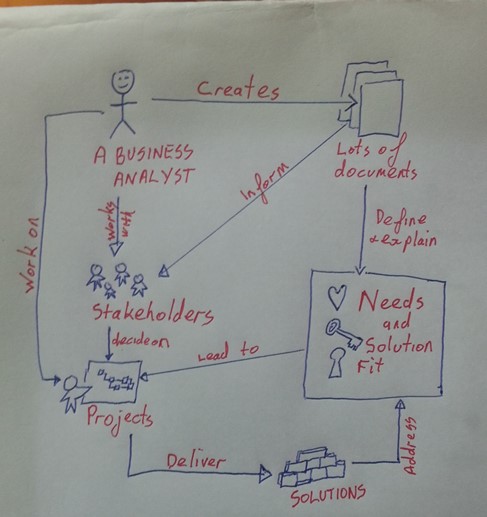 Creates
A BUSINESS
ANALYST
Lots of
documents
Inform
Works
with
Work on
Define
& explain
Stakeholders
Needs
and
Solution
Fit
decide on
Lead to
Projects
Deliver
Address
SOLUTIONS